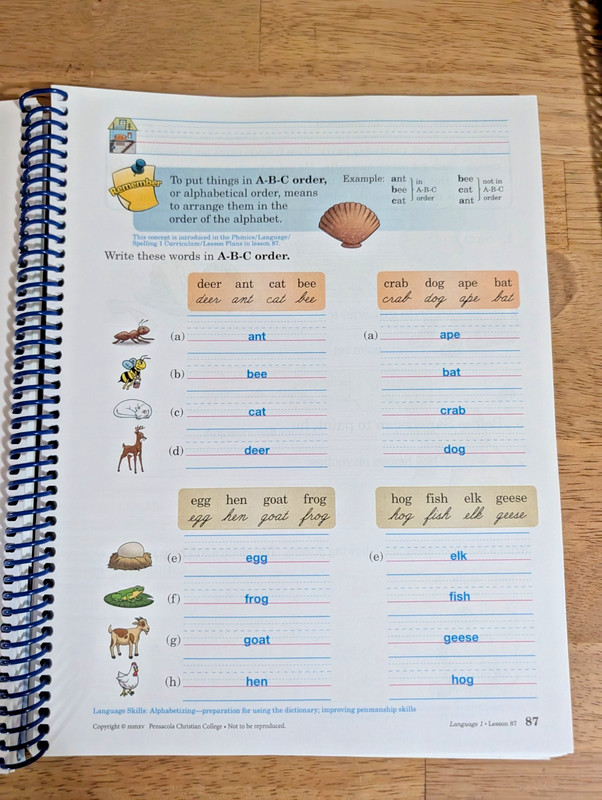 Remember
To put things in A-B-C order,
or alphabetical order, means
to arrange them in the
order of the alphabet.
Example: ant
bee
cat
in
A-B-C
order
bee
cat
ant
not in
A-B-C
order
This concept is introduced in the Phonics/Language/
Spelling 1 Curriculum/Lesson Plans in lesson 87.
Write these words in A-B-C order.
deer ant cat bee
deer ant cat bee
(a) ant
(b) bee
(c) cat
(d) deer
crab dog ape bat
crab dog ape bat
(a) ape
bat
crab
dog
egg hen goat frog
egg hen goat frog
(e) egg
(f) frog
(g) goat
(h) hen
hog fish elk geese
hog fish elk geese
(e) elk
fish
geese
hog
Language Skills: Alphabetizing—preparation for using the dictionary; improving penmanship skills
Copyright © mmxv Pensacola Christian College • Not to be reproduced.
Language 1 • Lesson 87 87